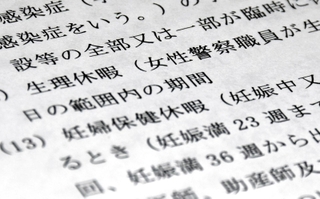 感染症（
感染症をいう。）の
設等の全部又は一部が臨時に
) 生理休暇（女性警察職員が生
日の範囲内の期間
(13) 妊婦保健休暇（妊娠中又
るとき（妊娠満 23 週ま
回、妊娠満 36 週から出
師、助産師及